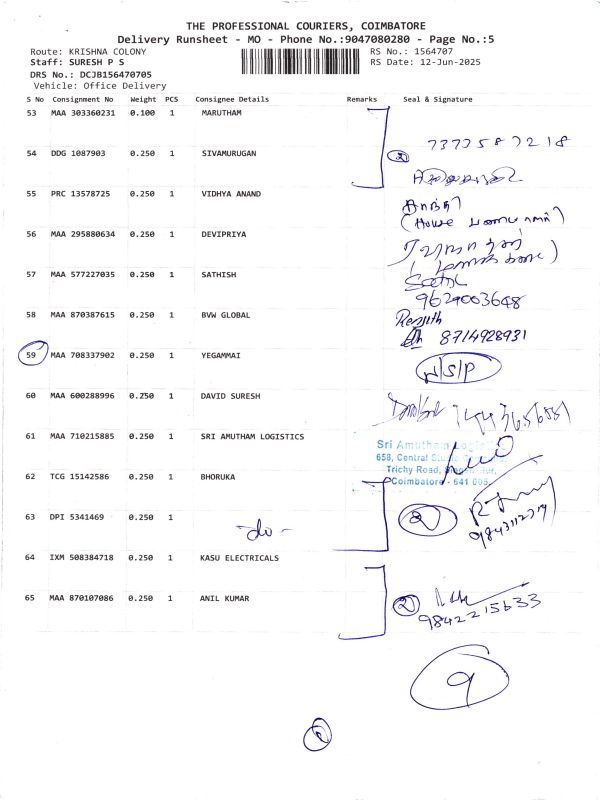 THE PROFESSIONAL COURIERS, COIMBATORE
Delivery Runsheet - MO - Phone No.:9047080280 - Page No.:5
Route: KRISHNA COLONY RS No.: 1564707
Staff: SURESH P S RS Date: 12-Jun-2025
DRS No.: DCJB156470705
Vehicle: Office Delivery
S No Consignment No Weight PCS Consignee Details Remarks Seal & Signature
53 MAA 303360231 0.100 1 MARUTHAM
2 7373587218
54 DDG 1087903 0.250 1 SIVAMURUGAN
55 PRC 13578725 0.250 1 VIDHYA ANAND
(House
56 MAA 295880634 0.250 1 DEVIPRIYA
57 MAA 577227035 0.250 1 SATHISH
9629003648
58 MAA 870387615 0.250 1 BVW GLOBAL Renjith
8714928931
59 MAA 708337902 0.250 1 YEGAMMAI N/S/P
60 MAA 600288996 0.250 1 DAVID SURESH
61 MAA 710215885 0.250 1 SRI AMUTHAM LOGISTICS
Sri Amutham
658, Central
Trichy Road,
Coimbatore - 641 005.
62 TCG 15142586 0.250 1 BHORUKA
63 DPI 5341469 0.250 1 -do- 2
64 IXM 508384718 0.250 1 KASU ELECTRICALS
65 MAA 870107086 0.250 1 ANIL KUMAR 2
9842215633
9